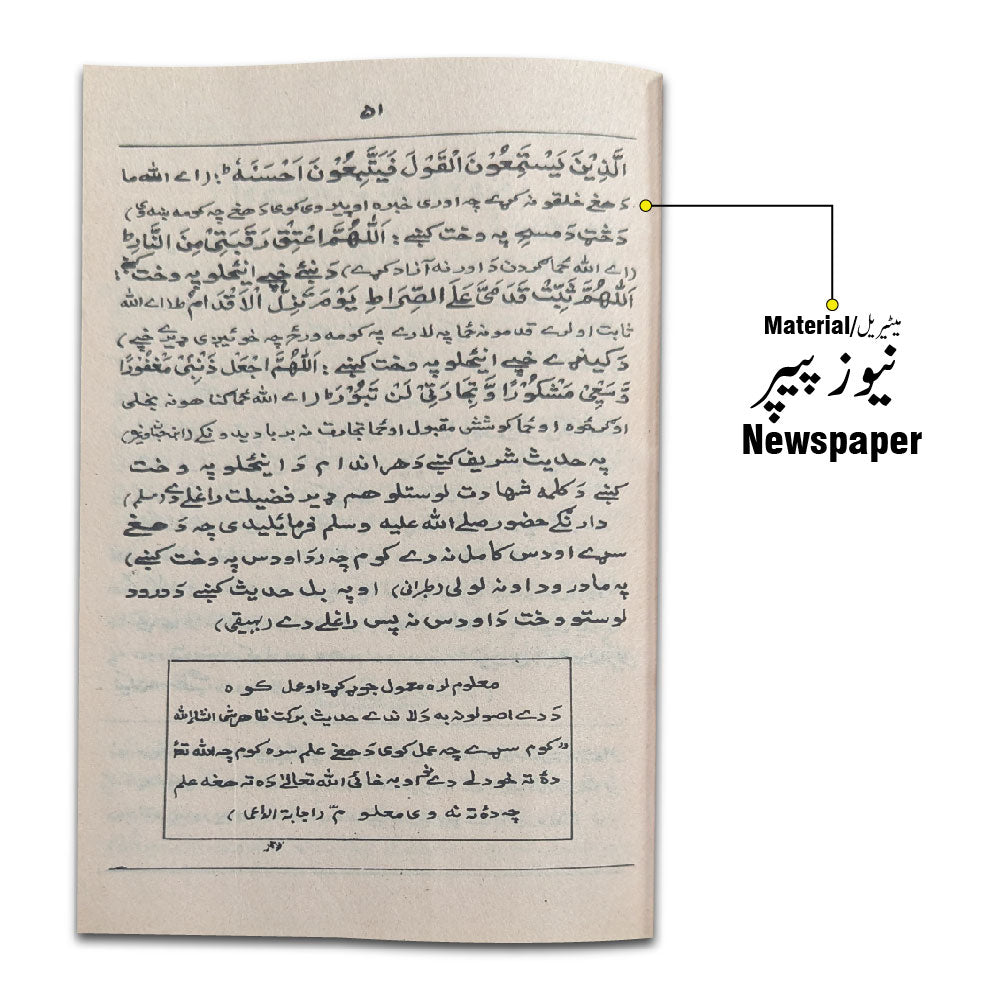 ۵۱
الَّذِيْنَ يَسْتَمِعُوْنَ الْقَوْلَ فَيَتَّبِعُوْنَ اَحْسَنَهٗ ط (اے الله ما
دَ هغے خلقو نه کړے چه اوری خبره او پیلاوی کوی دَ هغے چه کومه ښه وی)
دَ خټ دَ مسح په وخت کښے : اَللّٰهُمَّ اعْتِقْ رَقَبَتِيْ مِنَ النَّارِ ط
(اے الله ځما ګردن دَ اور نه آزاد کړے) دَ ښئے خپے اینځلو په وخت کښے :
اَللّٰهُمَّ ثَبِّتْ قَدَمَيَّ عَلَى الصِّرَاطِ يَوْمَ تَزِلُّ الْاَقْدَامُ ط (اے الله
ثابت اولرے قدمونه ځما په لارے په کومه ورځ چه خوئیږی ډیرے خپے)
دَ کینړے خپے اینځلو په وخت کښے : اَللّٰهُمَّ اجْعَلْ ذَنْبِيْ مَغْفُوْرًا
وَّ سَعْيِيْ مَشْكُوْرًا وَّ تِجَارَتِيْ لَنْ تَبُوْرَ ط (اے الله ځما ګناهونه بخلی
اوګرځوه او ځما کوشش مقبول او ځما تجارت نه بربادیدونکے
په حدیث شریف کښے دَ هر اندام دَ اینځلو په وخت
کښے دَ کلمه شهادت لوستلو هم ډیر فضیلت راغلے دے (مسلم)
دارنګے حضور صلے الله علیه وسلم فرمائیلیدی چه دَ هغے
سړے اودس کامل نه دے کوم چه (دَ اودس په وخت کښے)
په ما درود اونه لولی (طبرانی) او په بل حدیث کښے دَ درود
لوستو وخت دَ اودس نه پس راغلے دے (بهیقی)
معلوم لاه معمول جوړ کړه او عمل کوه
دَ دے اصولونه به دَ لاندے حدیث برکت ظاهر شی انشاءالله
"کوم سړے چه عمل کوی دَ هغے علم سره کوم چه الله تعٰ
دهٔ ته خودلے دے او به ښائی الله تعالیٰ دَه ته هغه علم
چه دهٔ ته نه وی معلوم" (اجابة الدعا)
Material/میٹیریل
نیوز پیپر
Newspaper